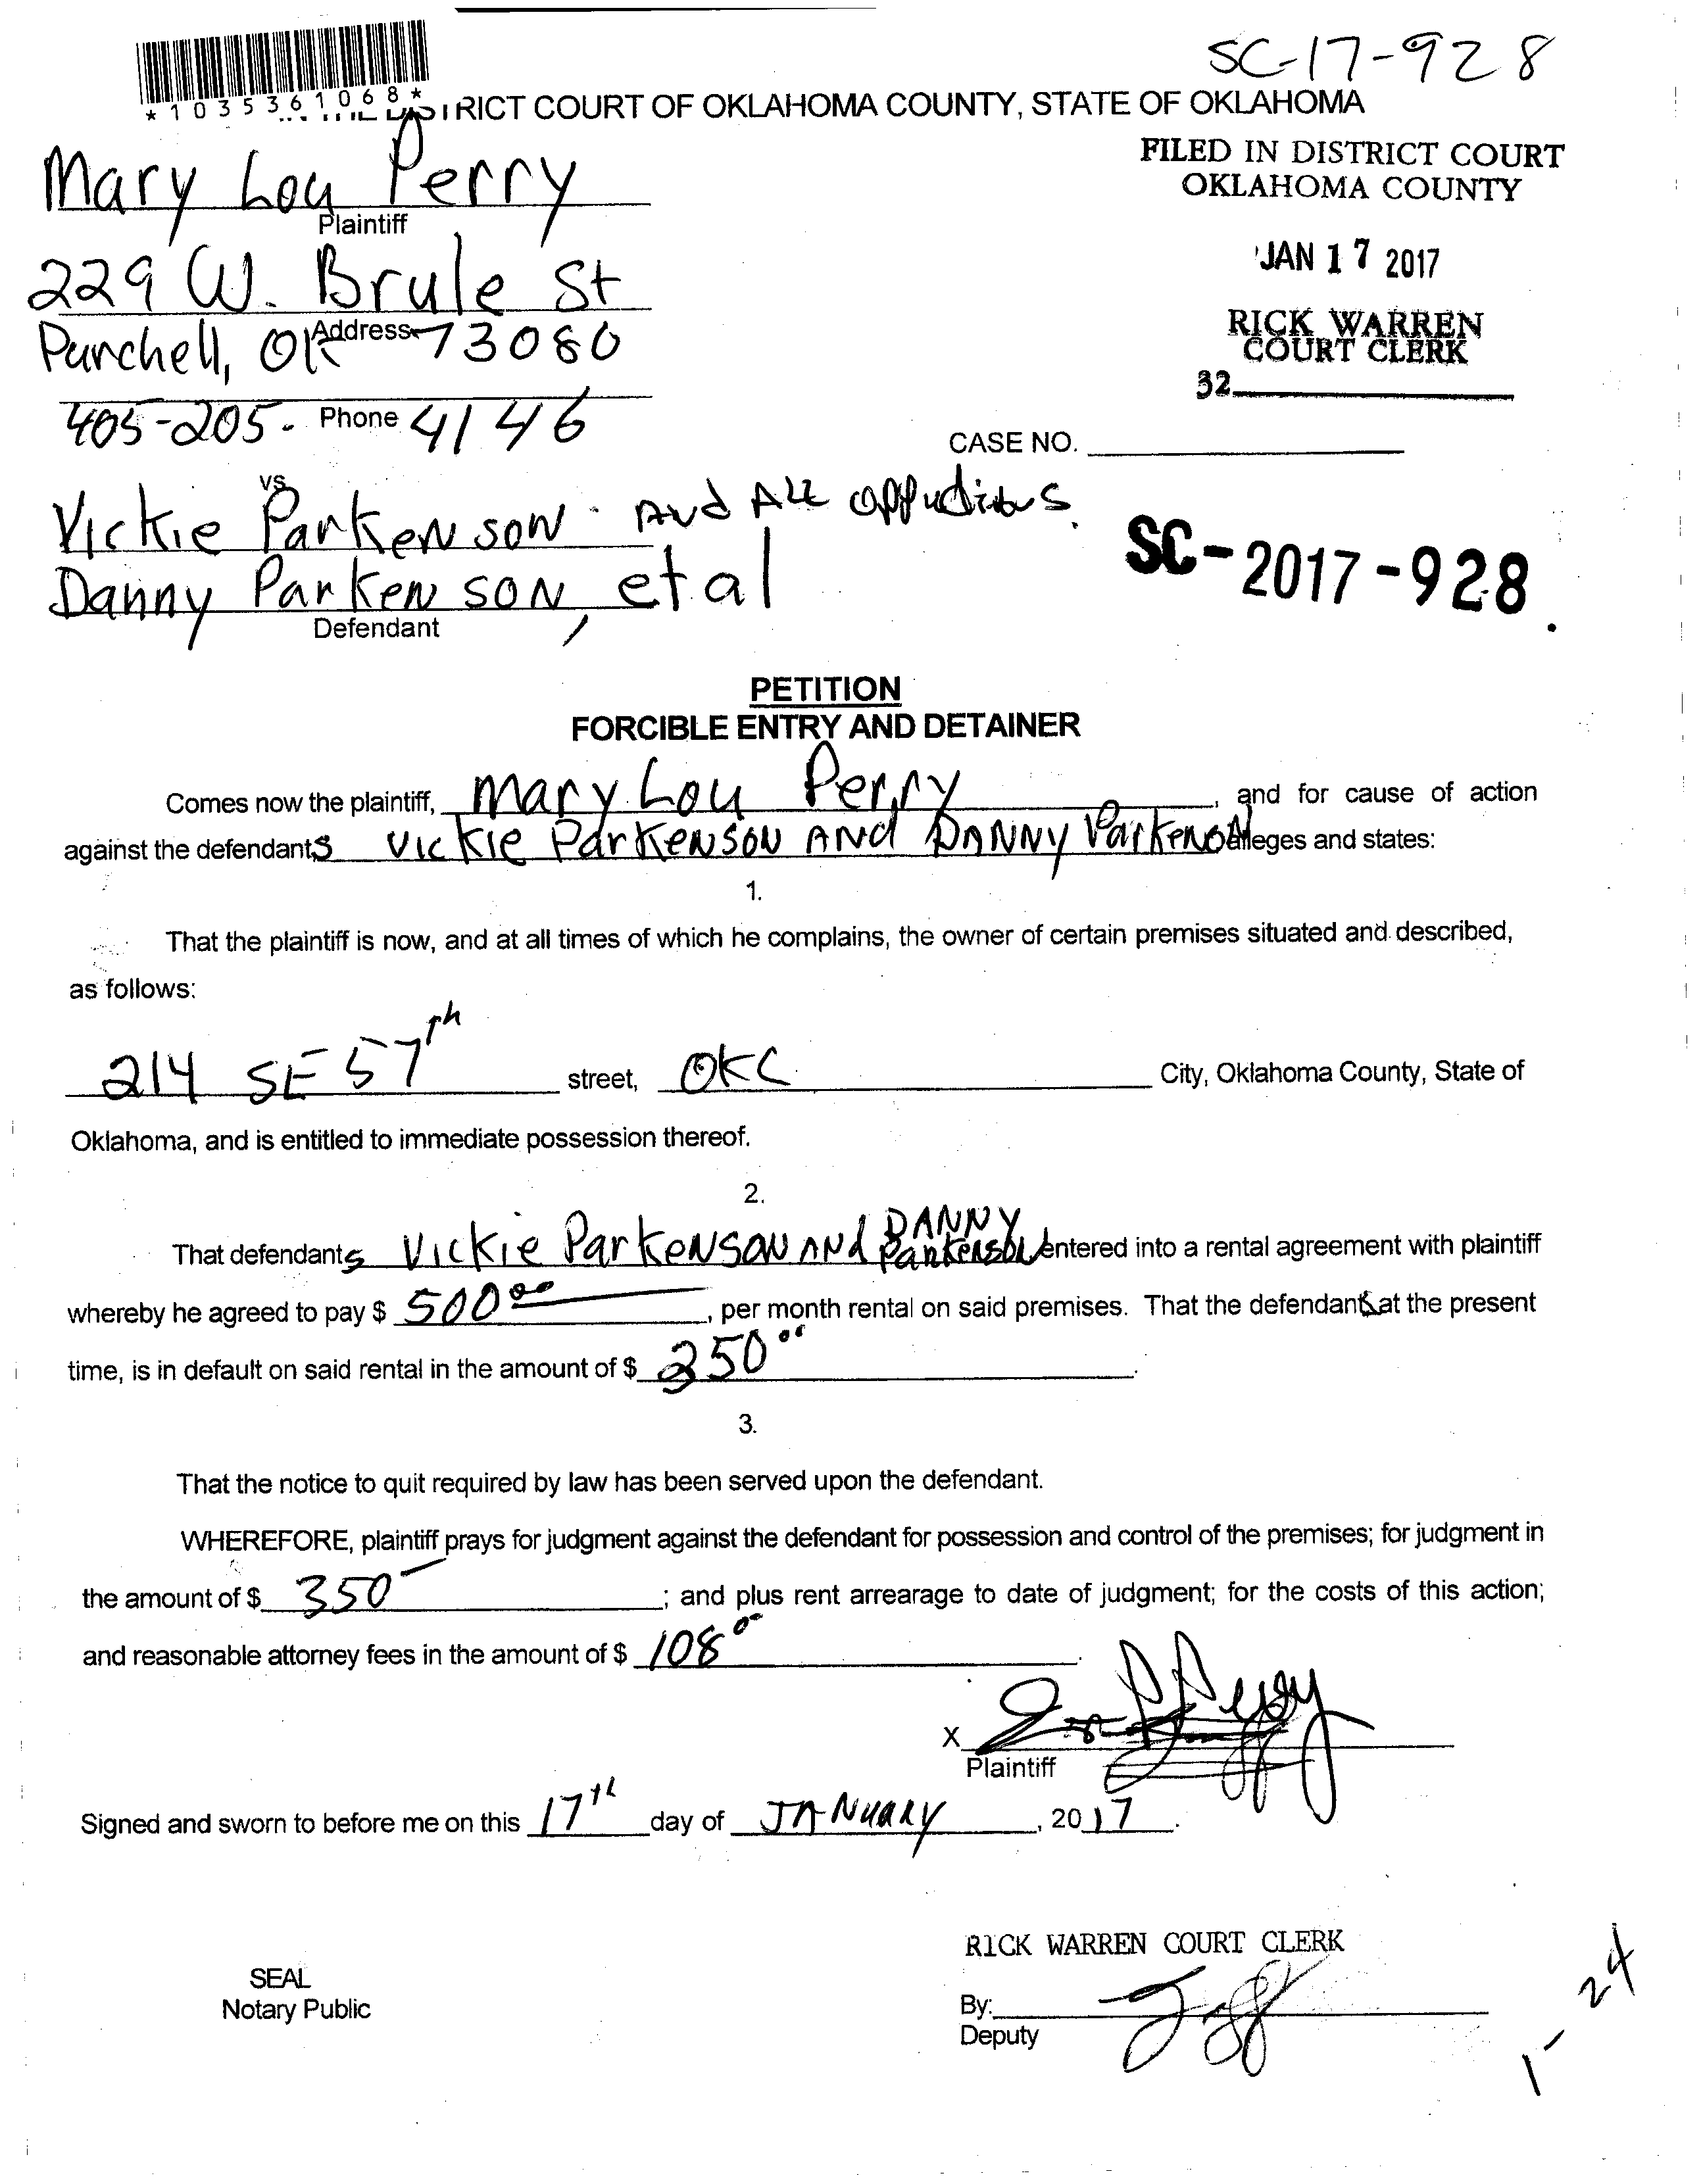 SC-17-928
*1035361068*
DISTRICT COURT OF OKLAHOMA COUNTY, STATE OF OKLAHOMA
Mary Lou Perry
Plaintiff
FILED IN DISTRICT COURT
OKLAHOMA COUNTY
229 W. Brule St
JAN 17 2017
Address
Purchell, OK 73080
RICK WARREN
COURT CLERK
32
405-205- Phone 4146
CASE NO.
vs
Vickie Parkenson And All
Danny Parkenson, et al
Defendant
SC-2017-928
PETITION
FORCIBLE ENTRY AND DETAINER
Comes now the plaintiff, Mary Lou Perry, and for cause of action
against the defendants Vickie Parkenson AND DANNY Parkenson alleges and states:
1.
That the plaintiff is now, and at all times of which he complains, the owner of certain premises situated and described,
as follows:
214 SE 57th street, OKC City, Oklahoma County, State of
Oklahoma, and is entitled to immediate possession thereof.
2.
That defendants Vickie Parkenson AND DANNY Parkenson entered into a rental agreement with plaintiff
whereby he agreed to pay $ 500 00, per month rental on said premises. That the defendants at the present
time, is in default on said rental in the amount of $ 350 00.
3.
That the notice to quit required by law has been served upon the defendant.
WHEREFORE, plaintiff prays for judgment against the defendant for possession and control of the premises; for judgment in
the amount of $ 350; and plus rent arrearage to date of judgment; for the costs of this action;
and reasonable attorney fees in the amount of $ 108 00.
X
Plaintiff
Signed and sworn to before me on this 17th day of JANUARY, 2017.
RICK WARREN COURT CLERK
SEAL
Notary Public
By:
Deputy
1-24